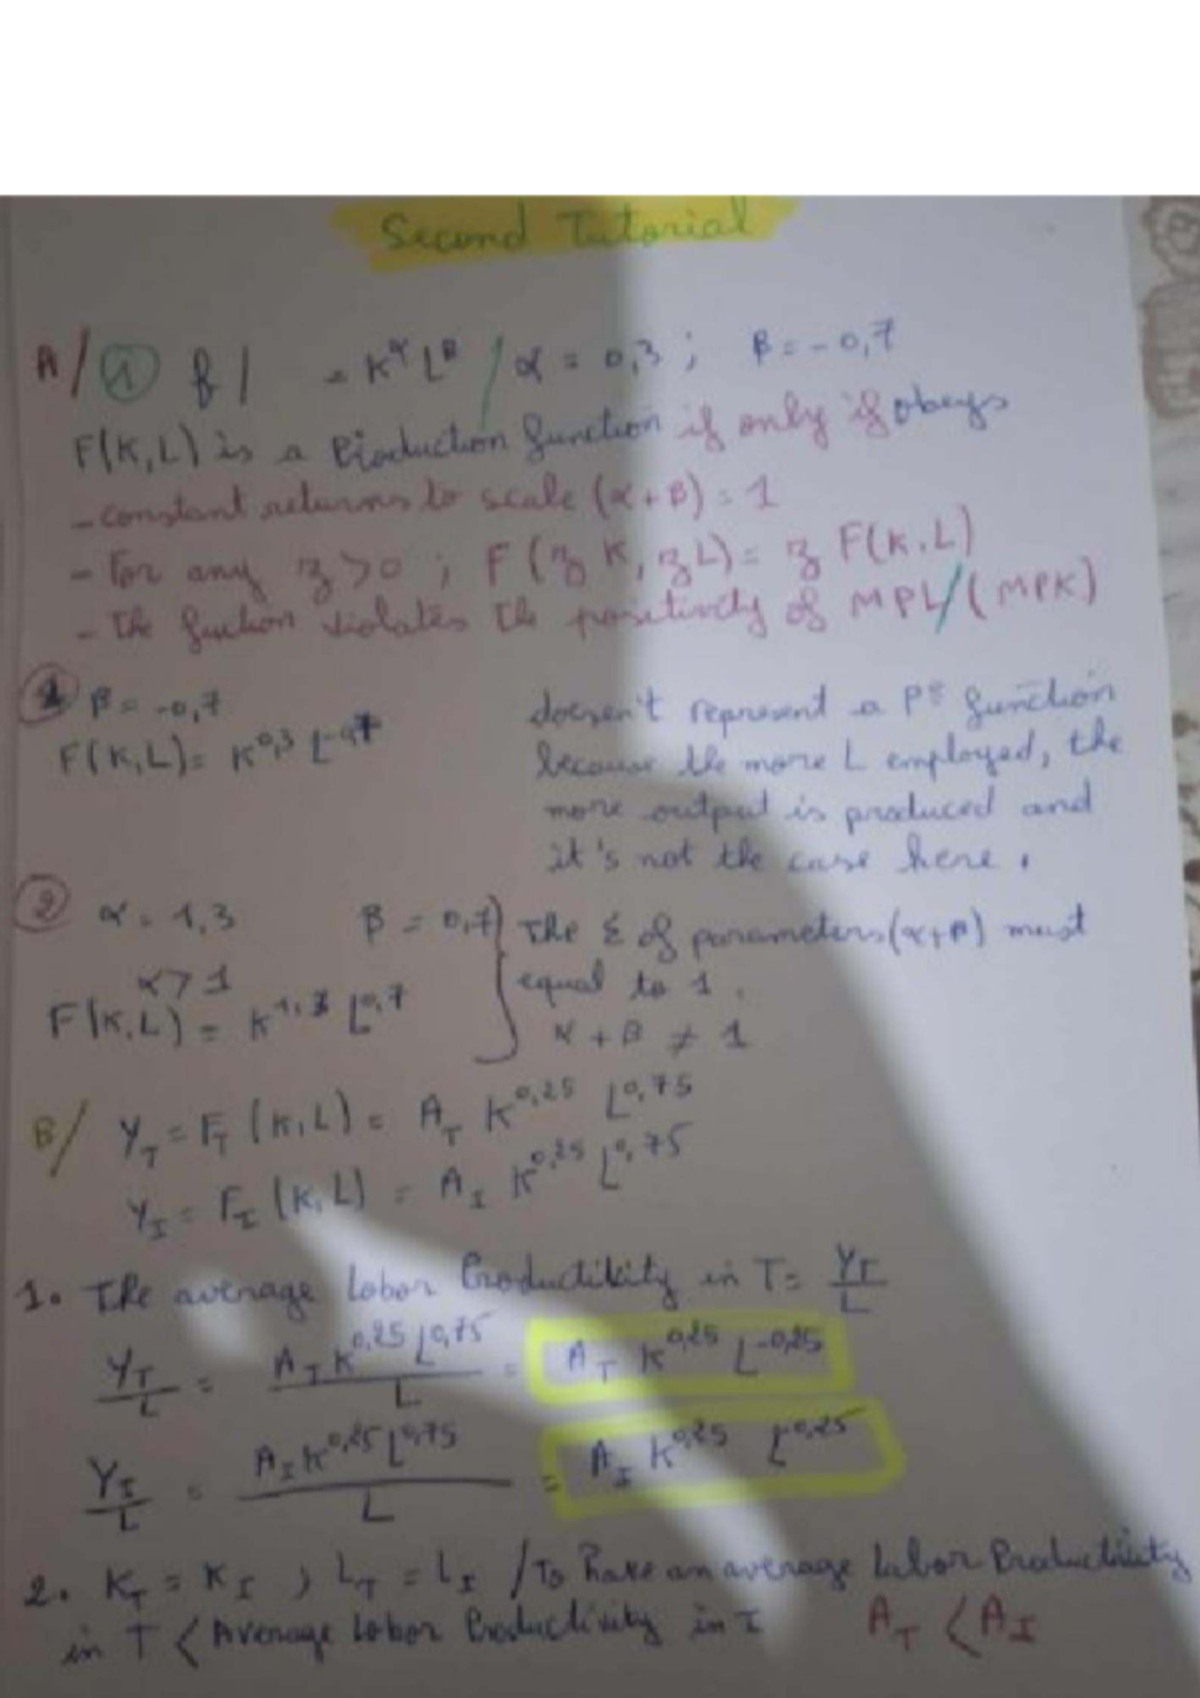 Second Tutorial
A/ ① f/ = K^α L^β / α = 0,3 ; β = -0,7
F(K,L) is a Production function if only if obeys
- constant returns to scale (α+β) = 1
- For any z>0 ; F(zK, zL) = z F(K.L)
- The fuction violates the positivity of MPL/(MPK)
1 β = -0,7
F(K,L) = K^0,3 L^-0,7
doesn't represent a P° function
because the more L employed, the
more output is produced and
it's not the case here.
② α = 1,3 β = 0,7
α > 1
F(K,L) = K^1,3 L^0,7
The Σ of parameters (α+β) must
equal to 1.
α + β ≠ 1
B/ Y_T = F_T (K,L) = A_T K^0,25 L^0,75
Y_I = F_I (K,L) = A_I K^0,25 L^0,75
1. The average labor Productivity in T = Y_T/L
Y_T/L = A_T K^0,25 L^0,75 / L = A_T K^0,25 L^-0,25
Y_I/L = A_I K^0,25 L^0,75 / L = A_I K^0,25 L^0,25
2. K_T = K_I ; L_T = L_I / To have an average Labor Productivity
in T < Average labor Productivity in I A_T < A_I